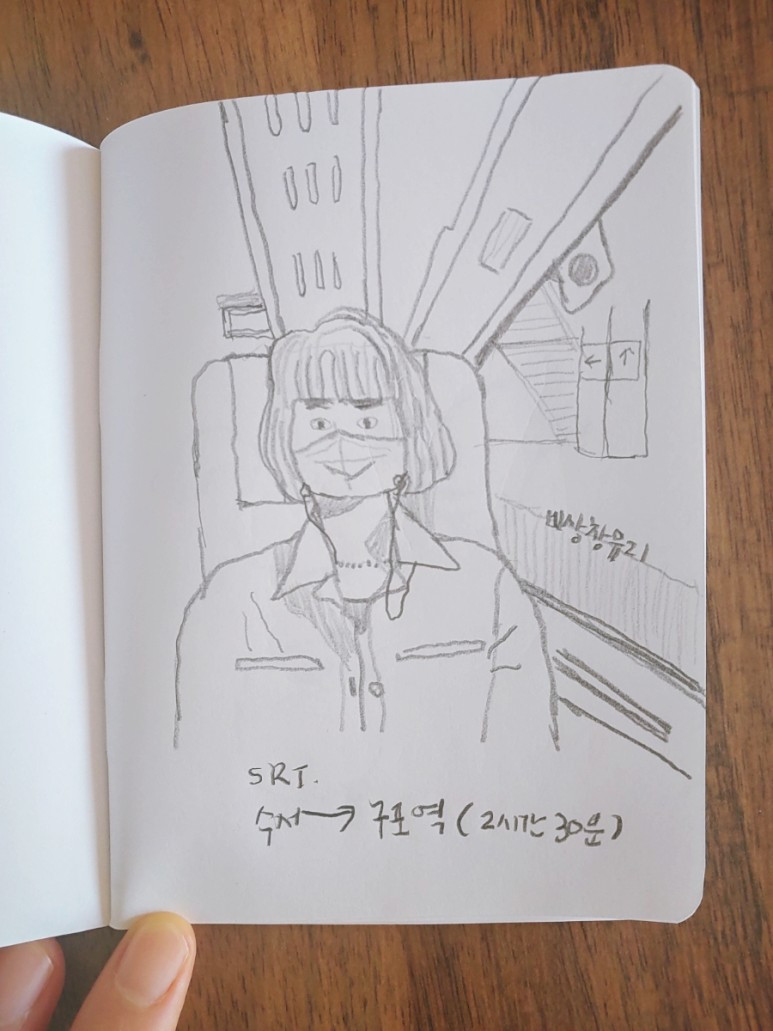 ← ↑
비상창유리
SRT.
수서→구포역(2시간 30분)